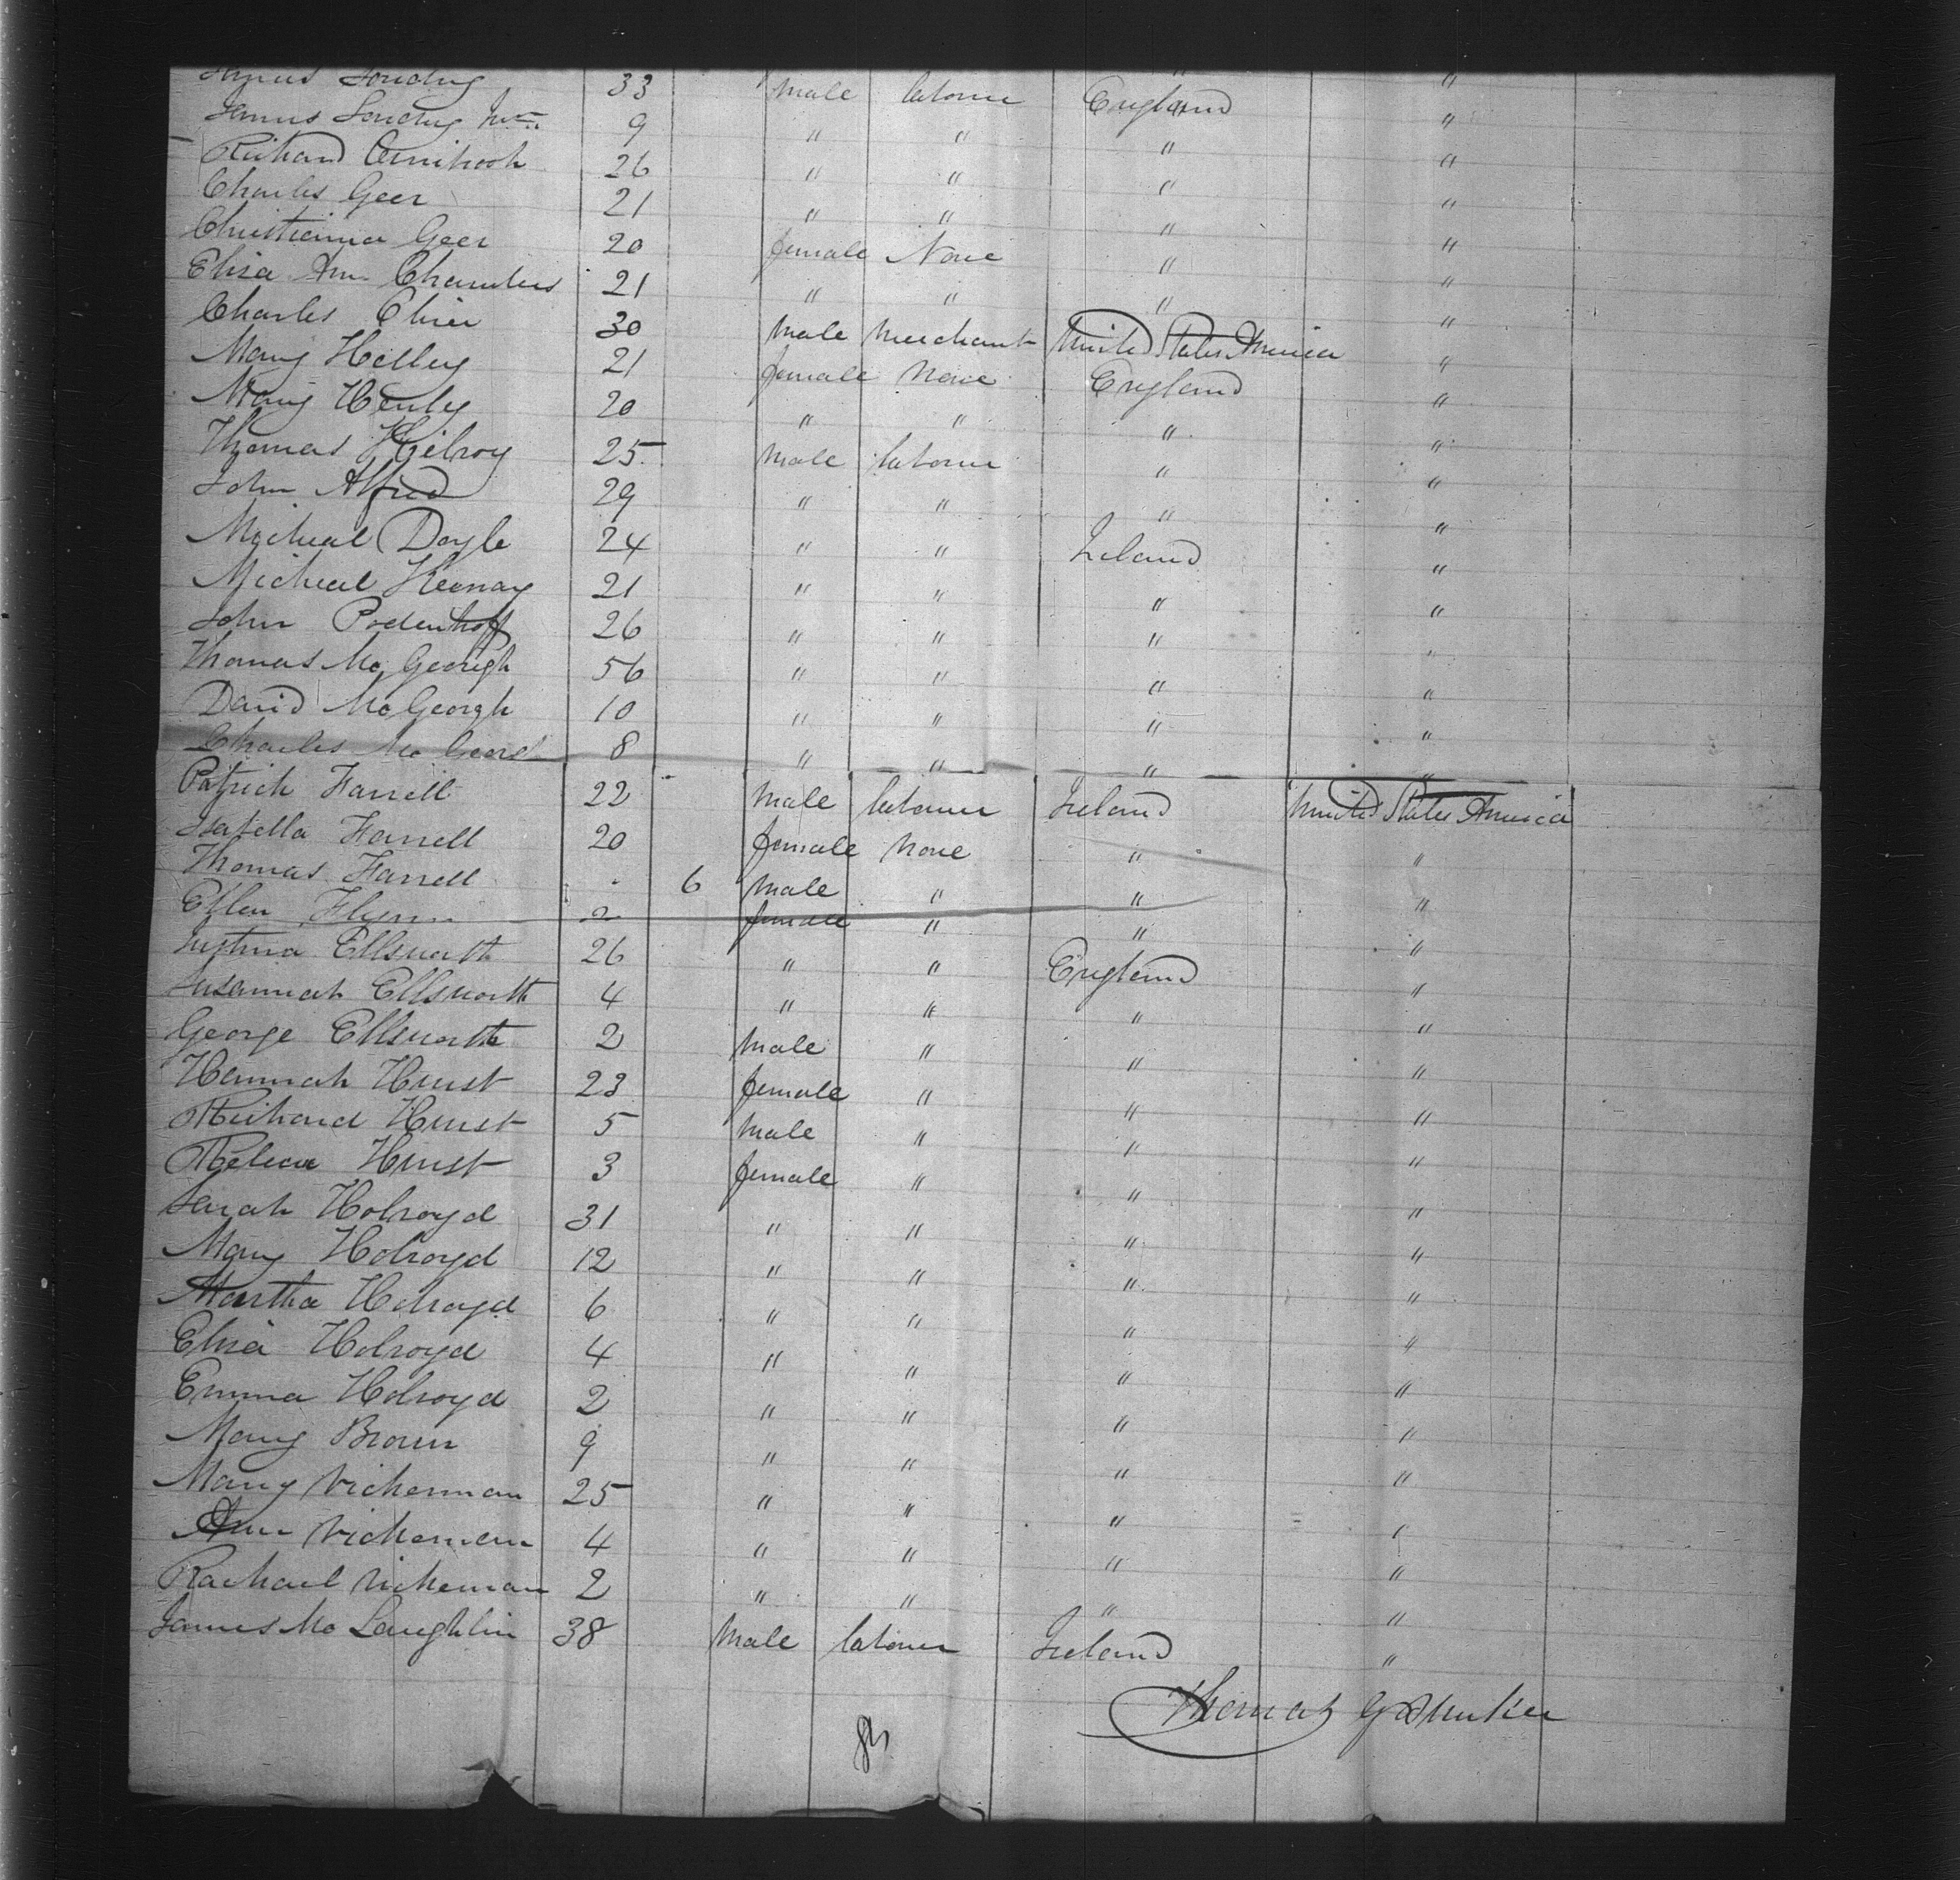 James 33 male laborer England "
James Jnr. 9 " " " "
Richard 26 " " " "
Charles Geer 21 " " " "
Christianna Geer 20 female None " "
Eliza Ann Chambers 21 " " " "
Charles 30 male merchant United States America "
Mary Helley 21 female None England "
Mary Henley 20 " " " "
Thomas Kilroy 25 male laborer " "
John Alfred 29 " " " "
Micheal Doyle 24 " " Ireland "
Micheal Keenay 21 " " " "
John Podenhoff 26 " " " "
Thomas Mc Georigh 56 " " " "
David Mc Georgh 10 " " " "
Charles Mc Georgh 8 " " " "
Patrick Farrell 22 male laborer Ireland United States America
Isabella Farrell 20 female None " "
Thomas Farrell 6 male " " "
Ellen Flynn 2 female " " "
Ellsworth 26 " " England "
Susannah Ellsworth 4 " " " "
George Ellsworth 2 male " " "
Hannah Hurst 23 female " " "
Richard Hurst 5 male " " "
Rebecca Hurst 3 female " " "
Sarah Holroyd 31 " " " "
Mary Holroyd 12 " " " "
Martha Holroyd 6 " " " "
Eliza Holroyd 4 " " " "
Emma Holroyd 2 " " " "
Mary Brown 9 " " " "
Mary Vickerman 25 " " " "
Ann Vickerman 4 " " " "
Rachael Vickerman 2 " " " "
James Mc Laughlin 38 male laborer Ireland "
Thomas